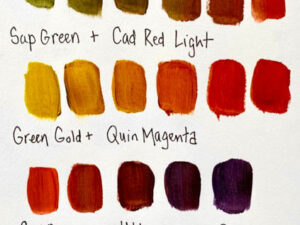 Sap Green + Cad Red Light
Green Gold + Quin Magenta